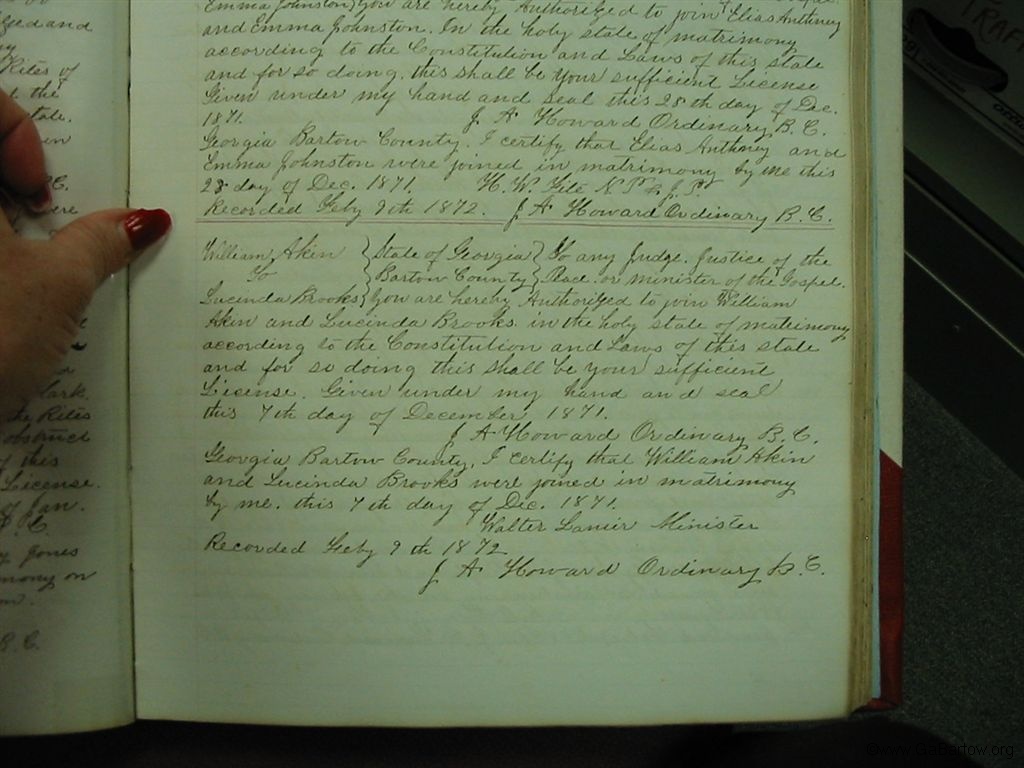 Emma Johnston} you are hereby Authorized to join Elias Anthney
and Emma Johnston. In the holy state of matrimony
according to the Constitution and Laws of this state
and for so doing. this shall be your sufficient License
Given under my hand and seal this 28th day of Dec.
1871. J. A. Howard Ordinary B. C.
Georgia Bartow County. I certify that Elias Anthney and
Emma Johnston were joined in matrimony by me this
28 day of Dec. 1871. H. W.
Recorded Feby 9th 1872. J. A. Howard Ordinary B. C.
William Akin } State of Georgia } To any Judge. Justice of the
To } Bartow County } Peace. or minister of the Gospel.
Lucinda Brooks } you are hereby Authorized to join William
Akin and Lucinda Brooks. in the holy state of matrimony
according to the Constitution and Laws of this state
and for so doing this shall be your sufficient
License. Given under my hand and seal
this 7th day of December, 1871.
J A Howard Ordinary B. C.
Georgia Bartow County, I certify that William Akin
and Lucinda Brooks were joined in matrimony
by me. this 7th day of Dec. 1871.
Walter Lanier Minister
Recorded Feby 9th 1872
J A. Howard Ordinary B. C.
and
Rites of
the
state.
were
Clark.
the Rites
obstruct
of this
License.
of Jan.
B. C.
Jones
mony on
B. C.
TRAFF